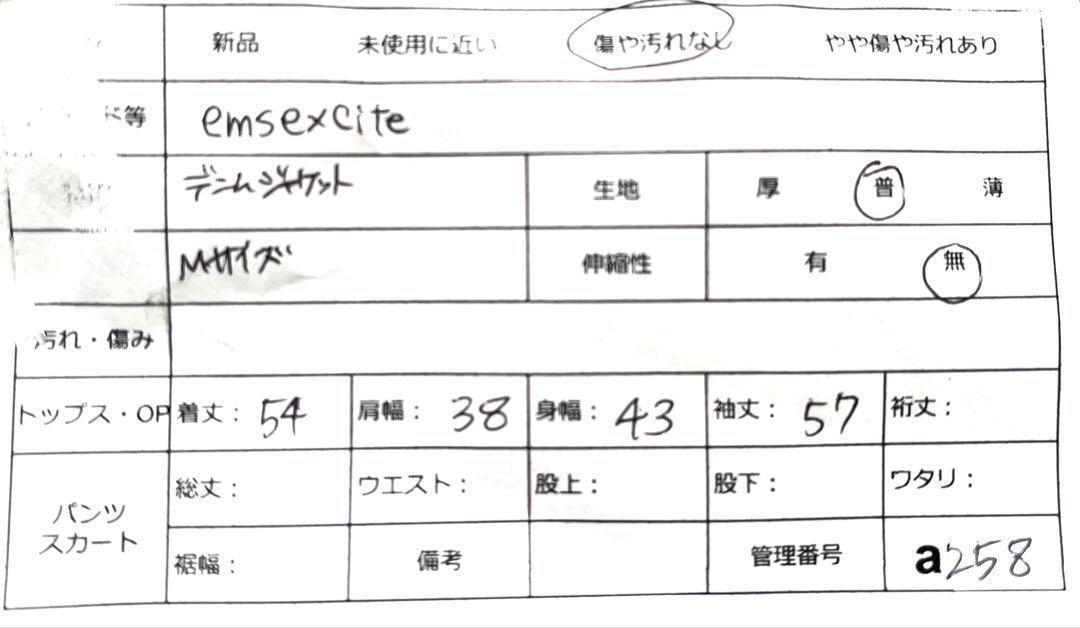 新品 未使用に近い 傷や汚れなし やや傷や汚れあり
ド等 emsexcite
デニムジャケット 生地 厚 普 薄
Mサイズ 伸縮性 有 無
汚れ・傷み
トップス・OP 着丈: 54 肩幅: 38 身幅: 43 袖丈: 57 裄丈:
パンツ スカート
総丈: ウエスト: 股上: 股下: ワタリ:
裾幅: 備考 管理番号 a258